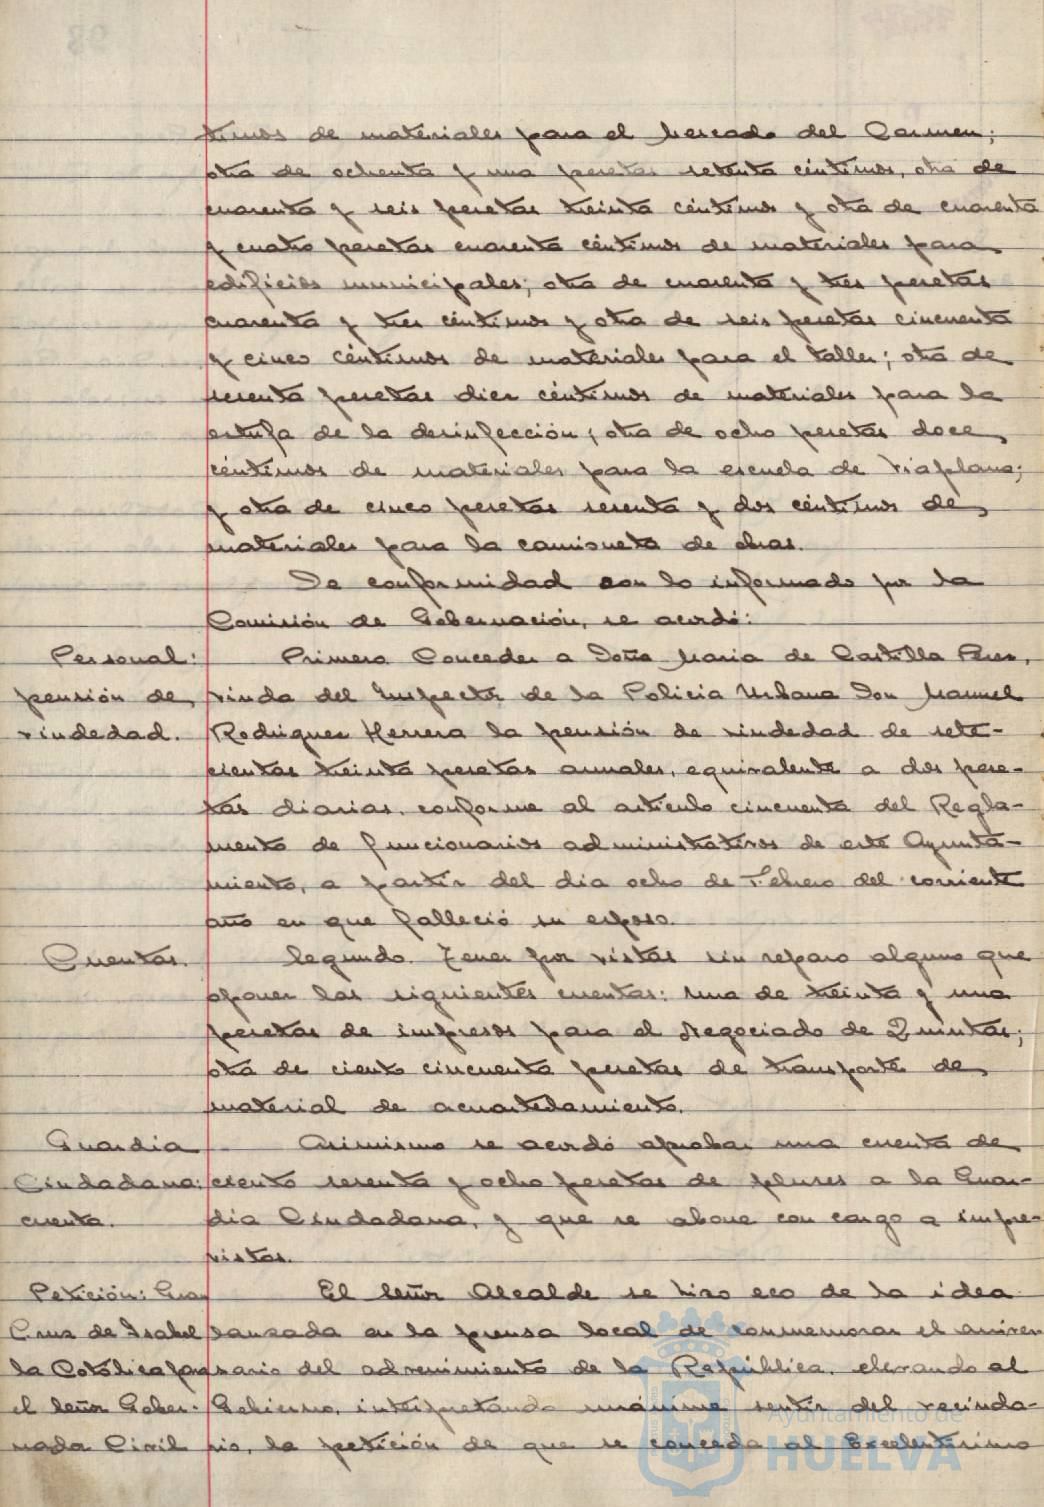 timos de materiales para el Mercado del Carmen;
otra de ochenta y una pesetas setenta céntimos, otra de
cuarenta y seis pesetas treinta céntimos y otra de cuarenta
y cuatro pesetas cuarenta céntimos de materiales para
edificios municipales; otra de cuarenta y tres pesetas
cuarenta y tres céntimos y otra de seis pesetas cincuenta
y cinco céntimos de materiales para el taller; otra de
sesenta pesetas diez céntimos de materiales para la
estufa de la desinfección; otra de ocho pesetas doce
céntimos de materiales para la escuela de Viaplana;
y otra de cinco pesetas sesenta y dos céntimos de
materiales para la camioneta de obras.
De conformidad con lo informado por la
Comisión de Gobernación, se acordó:
Personal:
pensión de
viudedad.
Primero. Conceder a Doña María de Castilla Perez,
viuda del Inspector de la Policía Urbana Don Manuel
Rodriguez Herrera la pensión de viudedad de sete-
cientas treinta pesetas anuales, equivalente a dos pese-
tas diarias, conforme al artículo cincuenta del Regla-
mento de funcionarios administrativos de este Ayunta-
miento, a partir del día ocho de Febrero del corriente
año en que falleció su esposo.
Cuentas.
Segundo. Tener por vistas sin reparo alguno que
oponer las siguientes cuentas: una de treinta y una
pesetas de impresos para el Negociado de Quintas;
otra de ciento cincuenta pesetas de transporte de
material de acuartelamiento.
Guardia
Ciudadana:
cuenta.
Asimismo se acordó aprobar una cuenta de
ciento sesenta y ocho pesetas de pluses a la Guar-
dia Ciudadana, y que se abone con cargo a impre-
vistos.
Petición: Gran
Cruz de Isabel
la Católica para
el Señor Gober-
nador Civil
El Señor Alcalde se hizo eco de la idea
lanzada en la prensa local de conmemorar el aniver
sario del advenimiento de la República, elevando al
Gobierno, interpretando unánime sentir del vecinda-
rio, la petición de que se conceda al Excelentísimo
Ayuntamiento de
HUELVA